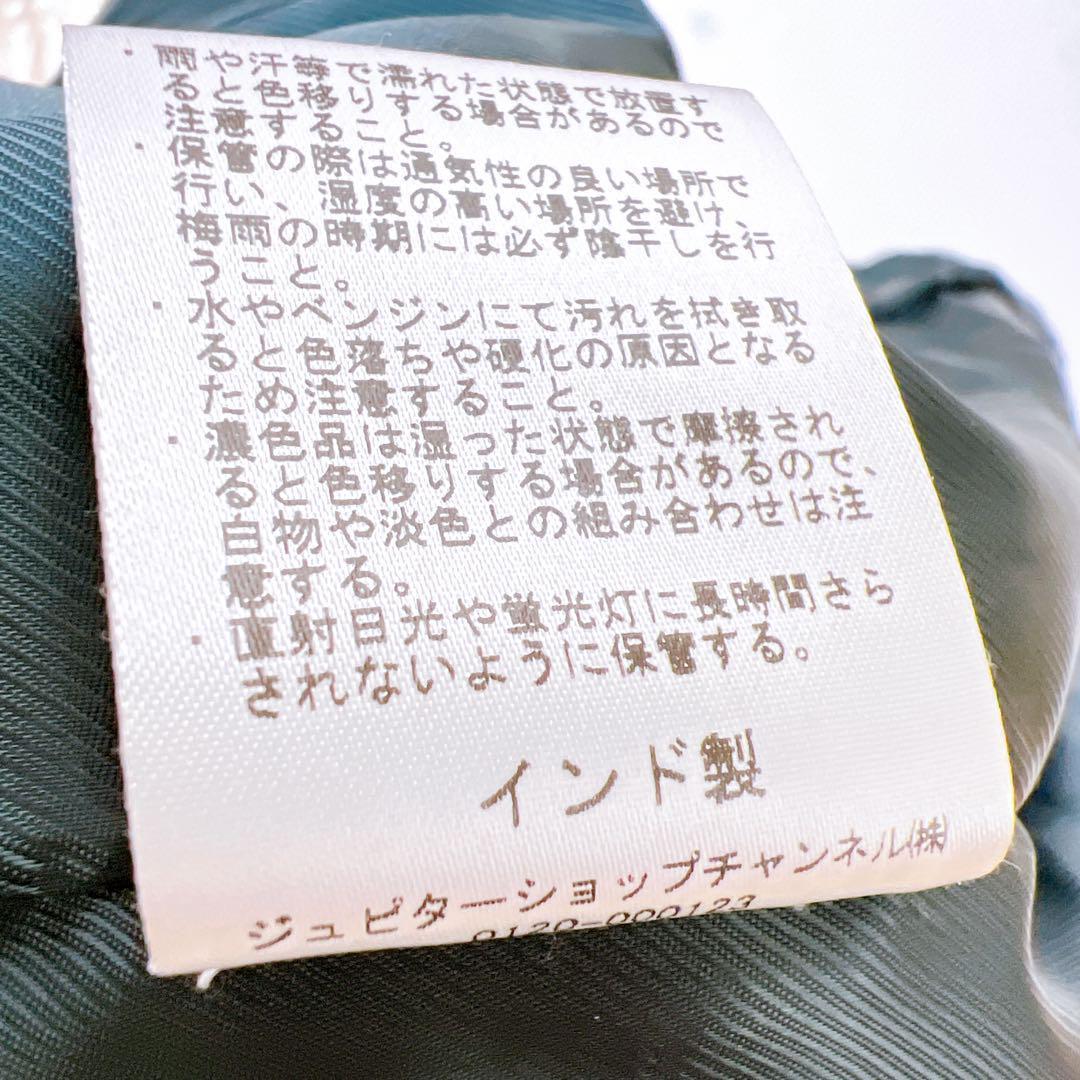 ・雨や汗等で濡れた状態で放置す
ると色移りする場合があるので
注意すること。
・保管の際は通気性の良い場所で
行い、湿度の高い場所を避け、
梅雨の時期には必ず陰干しを行
うこと。
・水やベンジンにて汚れを拭き取
ると色落ちや硬化の原因となる
ため注意すること。
・濃色品は湿った状態で摩擦され
ると色移りする場合があるので、
白物や淡色との組み合わせは注
意する。
・直射日光や蛍光灯に長時間さら
されないように保管する。
インド製
ジュピターショップチャンネル(株)
0120-000123